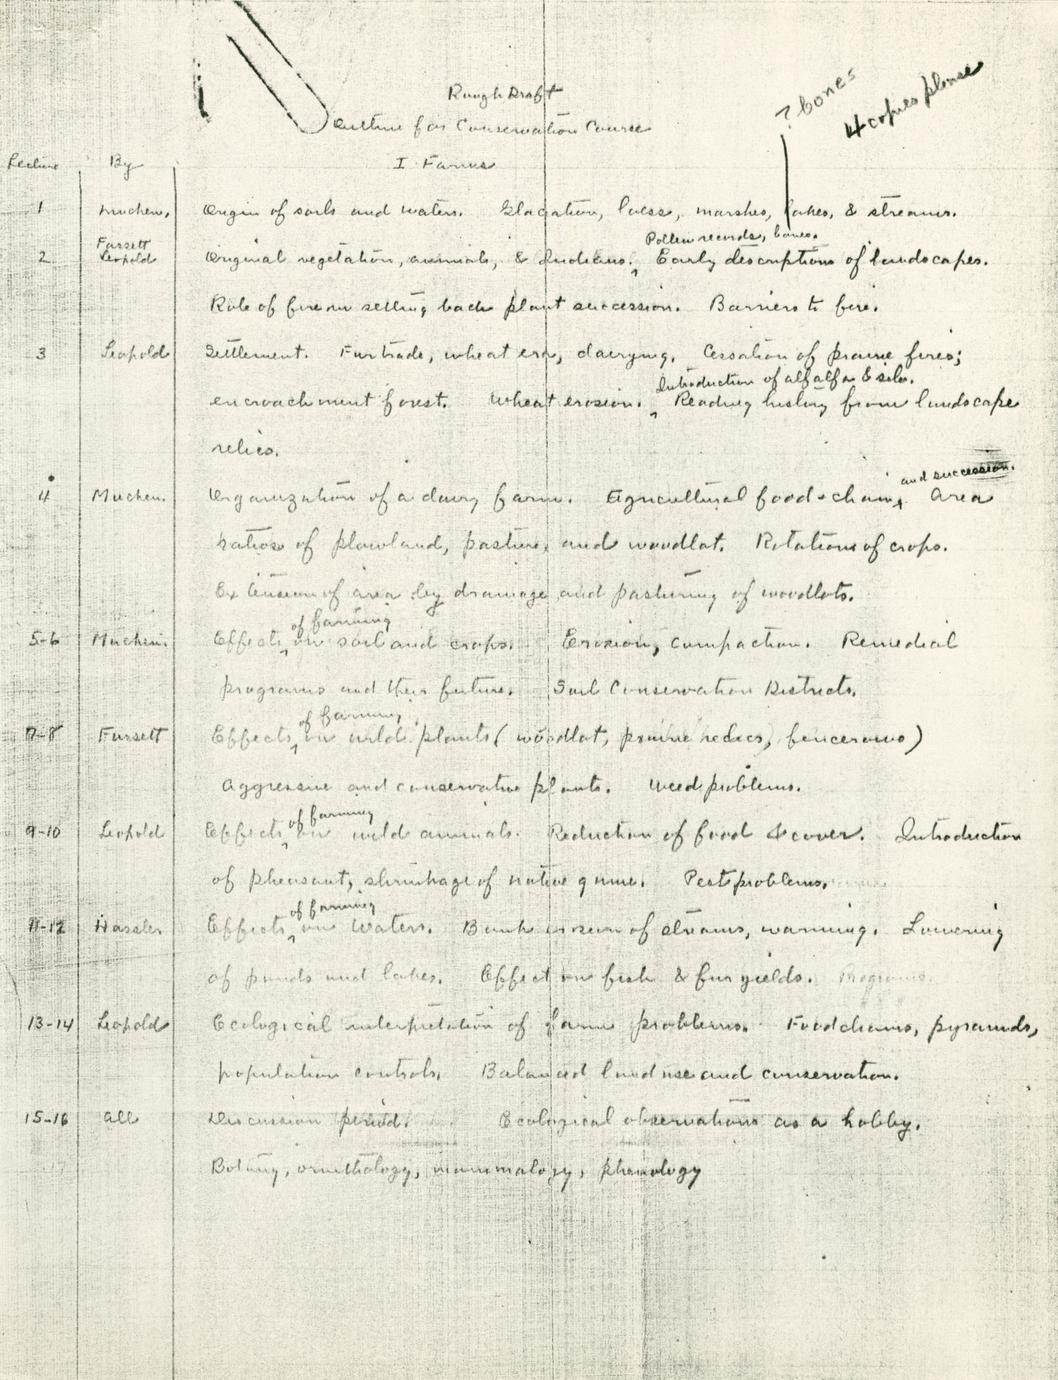 ? bones
4 copies please
Rough Draft
Outline for Conservation Course
Lecture By I Farms
1 Muchen. Origin of soils and waters. Glaciation, loess, marshes, lakes, & streams.
Fassett Pollen records, bones.
2 Leopold Original vegetation, animals, & Indians. Early descriptions of landscapes.
Role of fire in setting back plant succession. Barriers to fire.
3 Leopold Settlement. Fur trade, wheat era, dairying. Cessation of prairie fires;
Introduction of alfalfa & silo.
encroachment forest. Wheat erosion. Reading history from landscape
relics.
and succession.
4 Muchen. Organization of a dairy farm. Agricultural food-chain, Area
ratios of plowland, pasture, and woodlot. Rotations of crops.
Extension of area by drainage and pasturing of woodlots.
of farming
5-6 Muchen. Effects on soil and crops. Erosion, compaction. Remedial
programs and their future. Soil Conservation Districts.
of farming
7-8 Fassett Effects on wild plants (woodlot, prairie relics, fencerows)
Aggressive and conservative plants. Weed problems.
of farming
9-10 Leopold Effects on wild animals. Reduction of food & cover. Introduction
of pheasant, shrinkage of native game. Pest problems.
of farming
11-12 Hasler Effects on waters. Bank erosion of streams, warming. Lowering
of ponds and lakes. Effect on fish & fur yields. Programs.
13-14 Leopold Ecological interpretation of farm problems. Food chains, pyramids,
population controls. Balanced land use and conservation.
15-16 All Discussion period. Ecological observations as a hobby.
Botany, ornithology, mammalogy, phenology